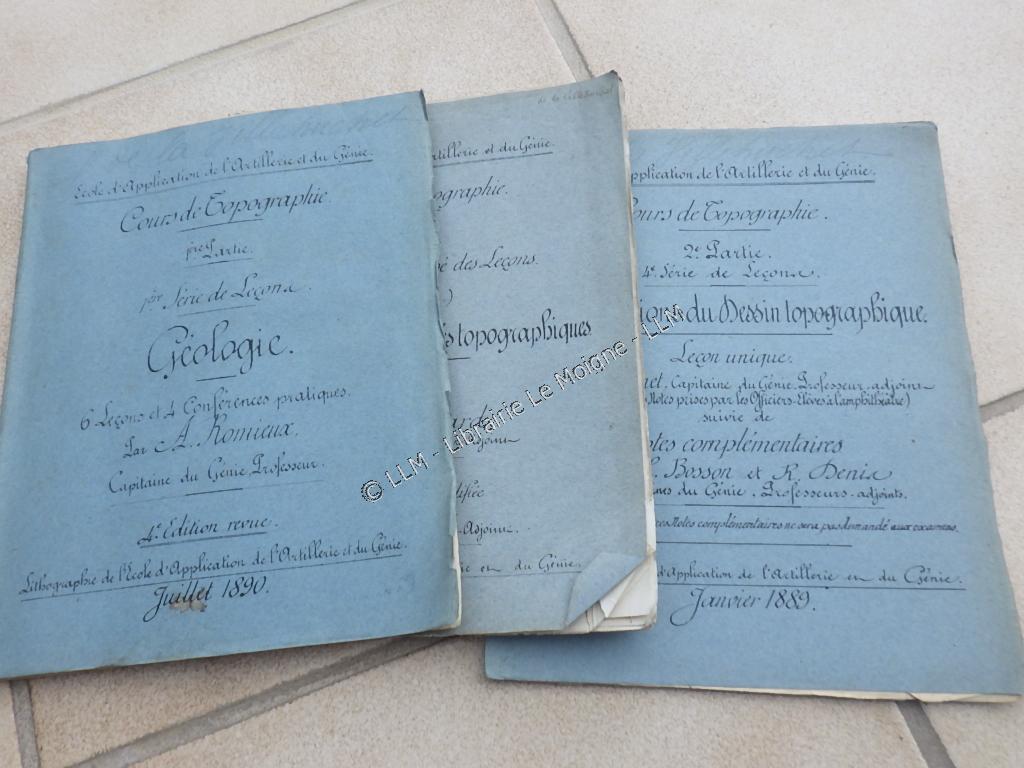 de la
Ecole d'Application de l'Artillerie et du Génie.
Cours de Topographie.
1ère Partie.
1ère Série de Leçons.
Géologie.
6 Leçons et 4 Conférences pratiques.
Par A. Romieux.
Capitaine du Génie, Professeur.
4e Edition revue.
Lithographie de l'Ecole d'Application de l'Artillerie et du Génie.
Juillet 1890.
de la
tillerie et du Génie.
ographie.
é des Leçons.
s topographiques.
adjoint
ifiée
Adjoint.
ie et du Génie.
pplication de l'Artillerie et du Génie.
Cours de Topographie.
2e Partie.
4e Série de Leçons.
ions du Dessin topographique.
Leçon unique.
et, Capitaine du Génie, Professeur-adjoint
(Notes prises par les Officiers-Elèves à l'amphithéâtre)
suivie de
Notes complémentaires
Bosson et R. Denis
nes du Génie, Professeurs-adjoints.
ces Notes complémentaires ne sera pas demandé aux examens.
d'Application de l'Artillerie et du Génie.
Janvier 1889.
© LLM - Librairie Le Moigne - LLM